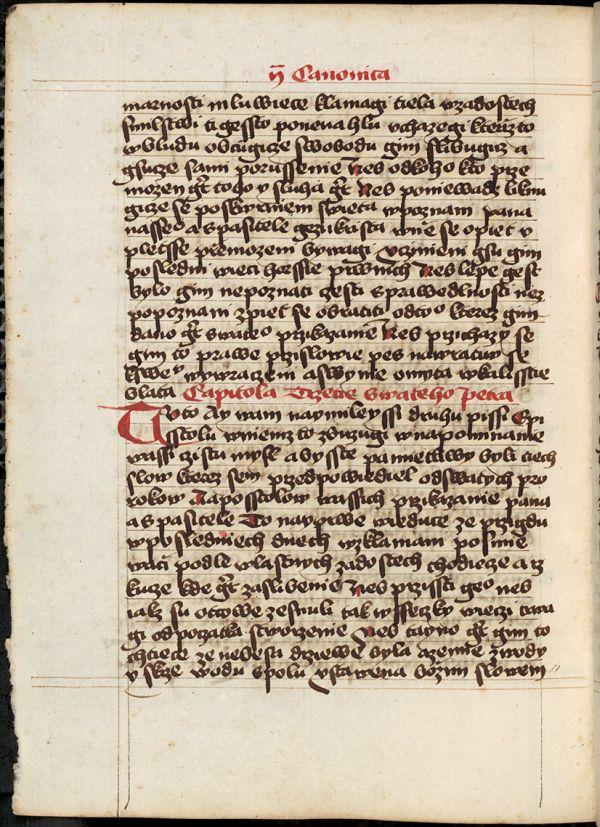 ij Canonica
marnosti mluwiece klamagi tiela w zadostech
smilstwi ti gessto ponenahlu uchazegi kterizto
w bludu obcugicze swobodu gim slibugicz a
gsucze sami porussenie Neb od koho kto prze
mozen gt toho y sluha gt Neb poniewadz
gicze se poskwrniem swieta w poznani pana
nasseo a spasitele gezukrista w nie se opiet
pletsse przemozeni bywagi Uczinieni gsu gim
posledni wieci horssie prwnich Neb lepe gest
bylo gim nepoznati cesti sprawedlnosti nez
po poznani zpiet se obratiti od toº kterez gim
dano gt swateº przikazanie Neb przihazy se
gim to prawe przislowie pes nawratiw se
k swe wywraczeni a swynie omyta w kalissstie
blata Capitola Trzetie swateho petra
Tuto ay wam naymileyssi druhu pissi Epi
sstolu w niemzto zbuzugi w napominanie
wassi czistu mysl abysste pamietliwy byli tiech
slow kterez sem przedpowiediel od swatych pro
rokow A aposstolow wassich przikazanie pana
a spasitele To nayprwe wieduce ze przigdu
w poslednich dnech w zklamani posmie
waci podle wlastnych zadostech chodiecze a rz
kucze kde gt zaslibenie Neb przissti geº neb
iakz su otcowe zesnuli tak wsseczky wieczi trwa
gi od poczatka stworzenie Neb tayno gt gim to
chtiece ze nebesa drziewe byla a zemie z wody
y skrze wodu spolu ustawena bozim slowem